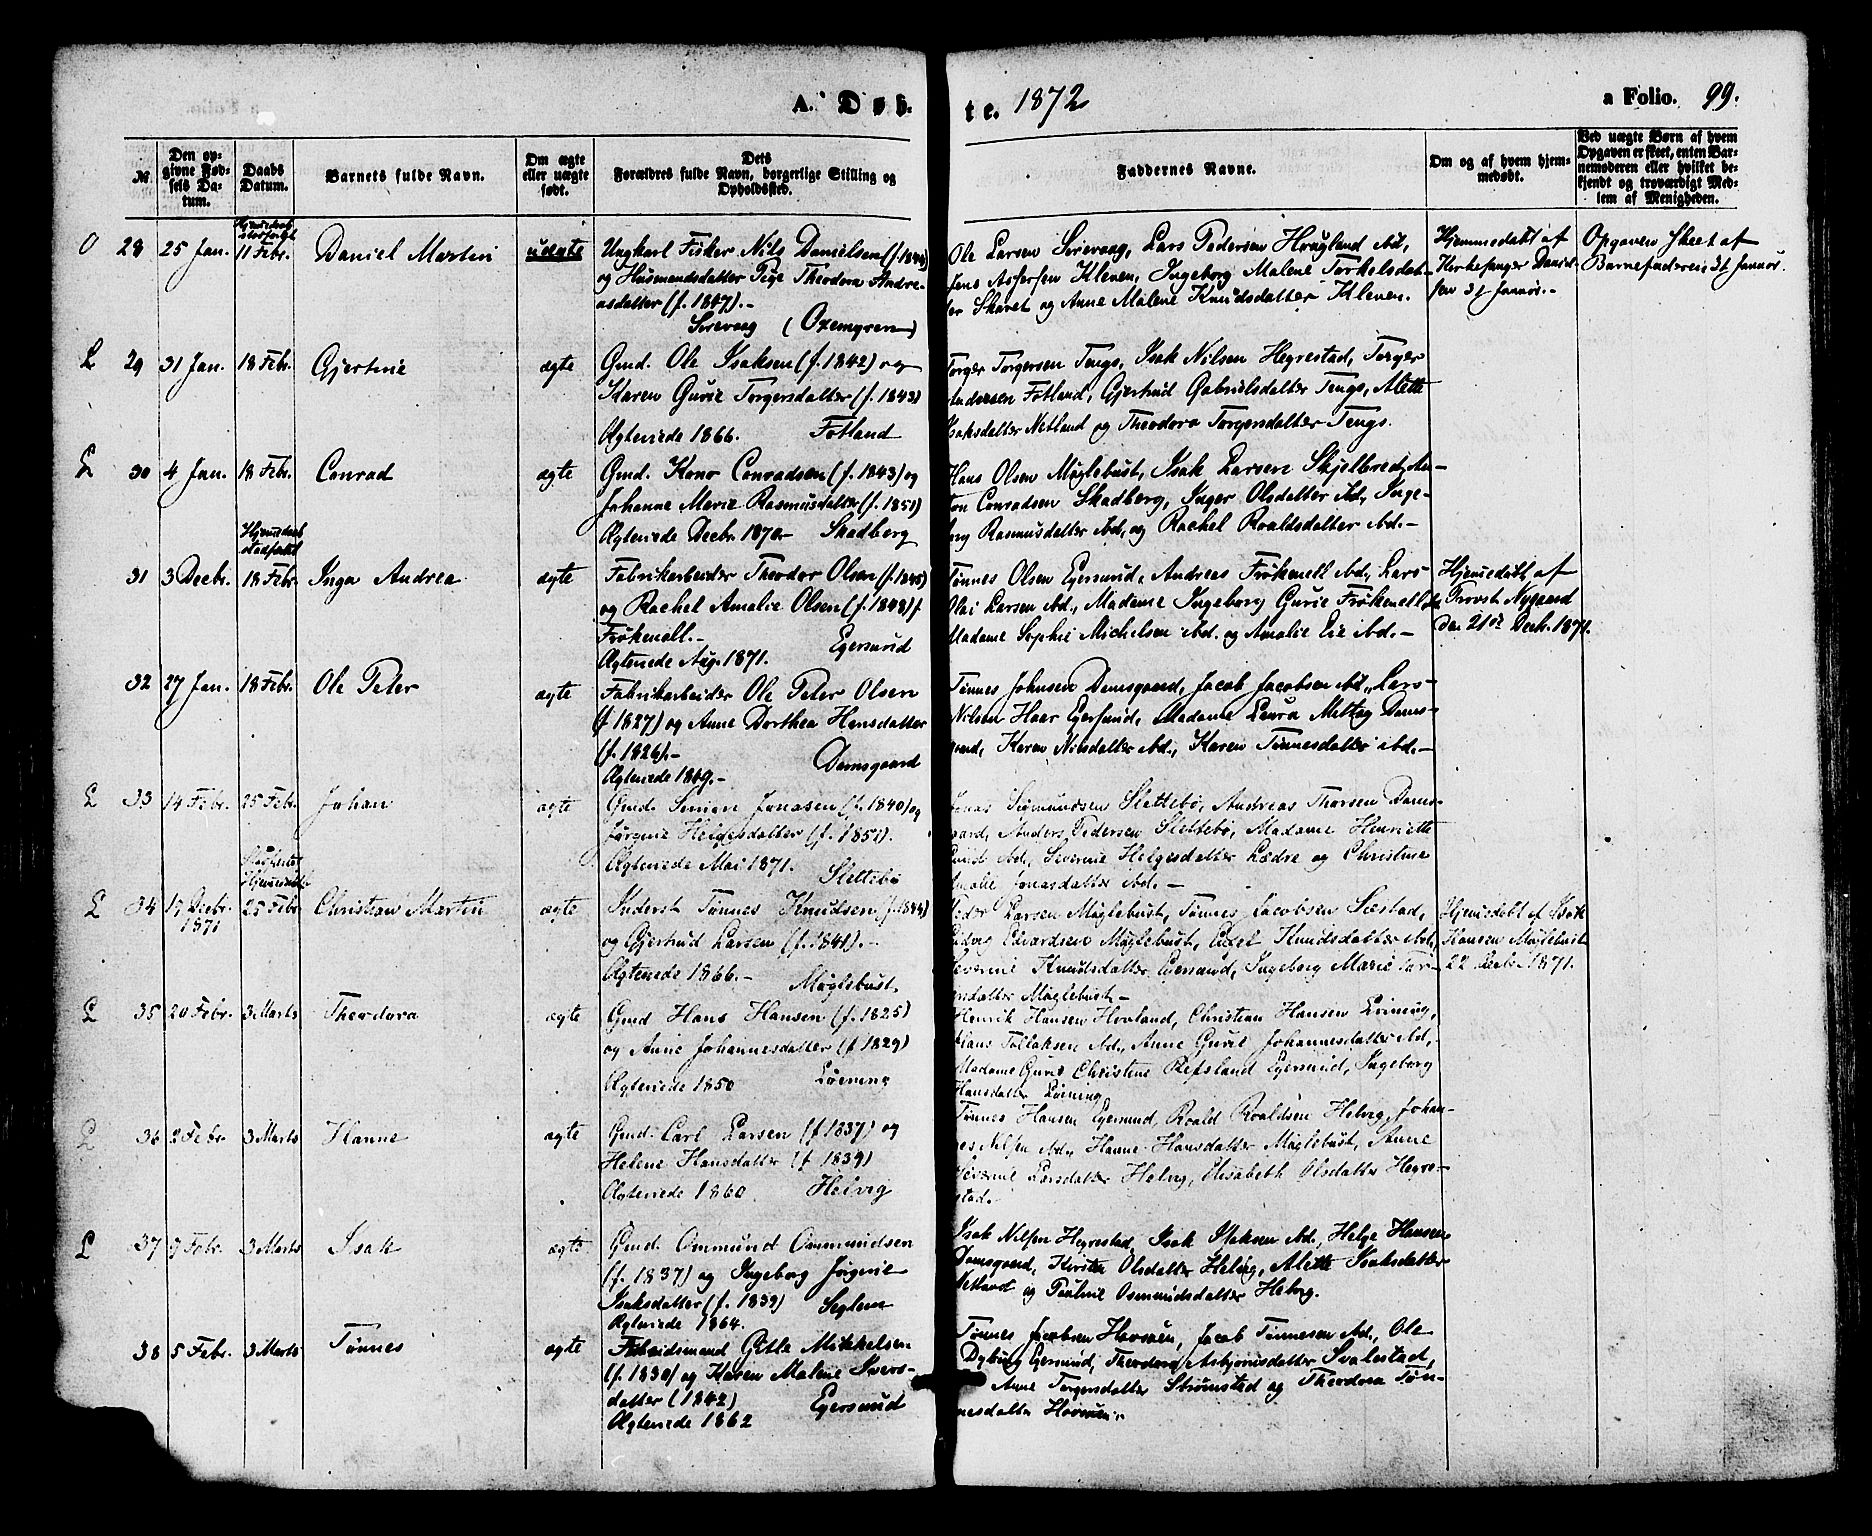 A. Døb-
te. 1872
a Folio. 99.
№
Den op-
givne Fød-
sels Da-
tum.
Daabs
Datum.
Barnets fulde Navn.
Om ægte
eller uægte
født.
Dets
Forældres fulde Navn, borgerlige Stilling og
Opholdssted.
Faddernes Navne.
Om og af hvem hjem-
medøbt.
Ved uægte Børn af hvem
Opgaven er skeet, enten Bar-
nemoderen eller hvilket be-
kjendt og troværdigt Med-
lem af Menigheden.
O 28 25 Jan. 11 Febr. Daniel Martin uægte
Ungkarl Fisker Nils Danielsen (f. 1844)
og Husmandsdatter Theodora Andre-
asdatter (f. 1847).-
Sirevaag
Ole Larsen Sirevaag, Lars Pedersen Hougland ibd,
Jens Assersen Kleven, Ingeborg Malene Torkelsdat-
ter Skaret og Anne Malene Knudsdatter Kleven.
Hjemmedøbt af
Kirkesanger Daniel-
sen 31 Januar.-
Opgaven skeet af
Barnefaderen 31 Januar.
L 29 31 Jan. 18 Febr. Gjertine ægte
Gmd. Ole Isaksen (f. 1842) og
Karen Gurie Torgersdatter (f. 1843)
Ægteviede 1866. Fotland
Torger Torgersen Tengs, Isak Nilsen Hegrestad, Torger
Andersen Fotland, Gjertrud Gabrielsdatter Tengs, Alette
Isaksdatter Netland og Theodora Torgersdatter Tengs.
L 30 4 Jan. 18 Febr. Conrad ægte
Gmd. Kono Conradsen (f. 1843) og
Johanne Marie Rasmusdatter (f. 1851)
Ægteviede Decbr. 1870.- Skadberg
Hans Olsen Møglebust, Isak Larsen Skjelbred, An-
ton Conradsen Skadberg, Inger Olsdatter ibd, Inge-
borg Rasmusdatter ibd, og Rachel Roaldsdatter ibd.-
Hjemmedaab
stadfæstet
31 3 Decbr. 18 Febr. Inga Andrea ægte
Fabrikarbeider Theodor Olsen (f. 1845)
og Rachel Amalie Olsen (f. 1848) f.
Frøkenell.-
Ægteviede Aug. 1871. Egersund
Tønnes Olsen Egersund, Andreas Frøkenell ibd., Lars
Olai Larsen ibd., Madame Ingeborg Gurie Frøkenell ibd
Madame Sophie Michelsen ibd. og Amalie Eie ibd.-
Hjemmedøbt af
Provst Nygaard
den 21de Decb. 1871.
32 27 Jan. 18 Febr. Ole Peter ægte
Fabrikarbeider Ole Peter Olsen
(f 1827) og Anne Dorthea Hansdatter
(f. 1826).-
Ægteviede 1849.- Damsgaard
Tønnes Johnsen Damsgaard, Jacob Jacobsen ibd., Lars
Nilsen Haar Egersund, Madame Laura Mettag Dams-
gaard, Karen Nilsdatter ibd., Karen Tønnesdatter ibd.-
L 33 14 Febr. 25 Febr. Johan ægte
Gmd. Simon Jonasen (f. 1840) og
Jørgine Helgesdatter (f. 1851).
Ægteviede Mai 1871. Slettebø
Jonas Sigmundsen Slettebø, Andreas Thorsen Dams-
gaard, Anders Pedersen Slettebø, Madame Henriette
ibd., Severine Helgesdatter Lædre og Christine
Amalie Jonasdatter ibd.-
L 34 19 Decbr. 25 Febr. Christian Martin ægte
1871
Inderst Tønnes Knudsen (f. 1844)
og Gjertrud Larsen (f. 1841).-
Ægteviede 1866.- Møglebust
Peder Larsen Møglebust, Tønnes Jacobsen Sæstad,
Ludvig Edvardsen Møglebust, Knudsdatter ibd,
Severine Knudsdatter Egersund, Ingeborg Marie Tor-
gersdatter Møglebust-
Hjemmedøbt af Isak
Hansen Møglebust
22 Decbr. 1871.
L 35 20 Febr. 3 Marts Theodora ægte
Gmd Hans Hansen (f. 1825)
og Anne Johannesdatter (f. 1829)
Ægteviede 1850 Løining
Henrik Hansen Hovland, Christian Hansen Løining,
Hans Tollaksen ibd., Anne Gurie Johannesdatter ibd,
Madame Gurie Christine Refsland Egersund, Ingeborg
Hansdatter Løining
L 36 2 Febr 3 Marts Hanne ægte
Gmd. Carl Larsen (f 1837) og
Helene Hansdatter (f 1839)
Ægteviede 1860. Helvig
Tønnes Hansen Egersund, Roald Roaldsen Helvig, Johan-
nes Nilsen ibd., Hanne Hansdatter Møglebust, Anne
Severine Larsdatter Helvig, Elisabeth Olsdatter Hegre-
stad.
L 37 9 Febr. 3 Marts Isak ægte
Gmd. Ommund Ommundsen
(f. 1837) og Ingeborg Jørgine
Isaksdatter (f. 1839) Seglem
Ægteviede 1864.
Isak Nilsen Hegrestad, Isak Isaksen ibd., Helge Hansen
Damsgaard, Kirsten Olsdatter Helvig, Alette Isaksdatter
Netland og Pauline Osmundsdatter Helvig.
38 5 Febr. 3 Marts Tønnes ægte
Arbeidsmand Gitle Mikkelsen
(f. 1830) og Karen Malene Ivers-
datter (1842)
Ægteviede 1862 Egersund
Tønnes Jacobsen Hovsøen, Jacob Tønnesen ibd., Ole
Dyburg Egersund, Theodora Asbjørnsdatter Svalestad,
Anne Torgersdatter Strømstad og Theodora Tøn-
nesdatter Hovsøen.